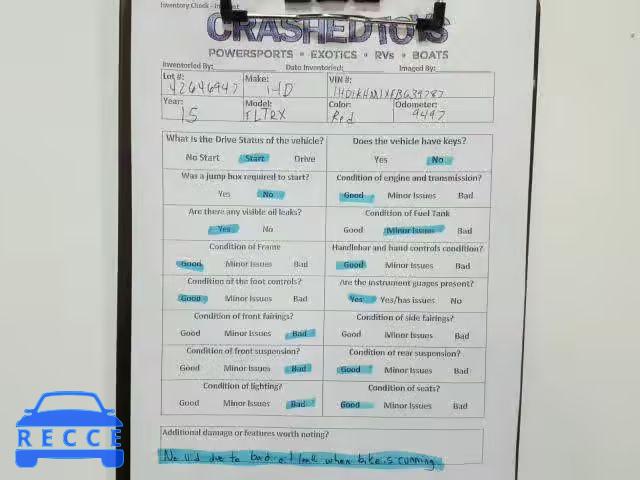 Inventory Check - In
CRASHEDTOYS
POWERSPORTS • EXOTICS • RVs • BOATS
Inventoried By: Date Inventoried: Imaged By:
Lot #: Make: VIN #:
42646947 HD 1HD1KHM1XFB639787
Year: Model: Color: Odometer:
15 FLTRX Red 9497
What is the Drive Status of the vehicle? Does the vehicle have keys?
No Start Start Drive Yes No
Was a jump box required to start? Condition of engine and transmission?
Yes No Good Minor Issues Bad
Are there any visible oil leaks? Condition of Fuel Tank
Yes No Good Minor Issues Bad
Condition of Frame Handlebar and hand controls condition?
Good Minor Issues Bad Good Minor Issues Bad
Condition of the foot controls? Are the instrument guages present?
Good Minor Issues Bad Yes Yes/has issues No
Condition of front fairings? Condition of side fairings?
Good Minor Issues Bad Good Minor Issues Bad
Condition of front suspension? Condition of rear suspension?
Good Minor Issues Bad Good Minor Issues Bad
Condition of lighting? Condition of seats?
Good Minor Issues Bad Good Minor Issues Bad
Additional damage or features worth noting?
No Vid due to bad oil leak when bike is running
RECCE